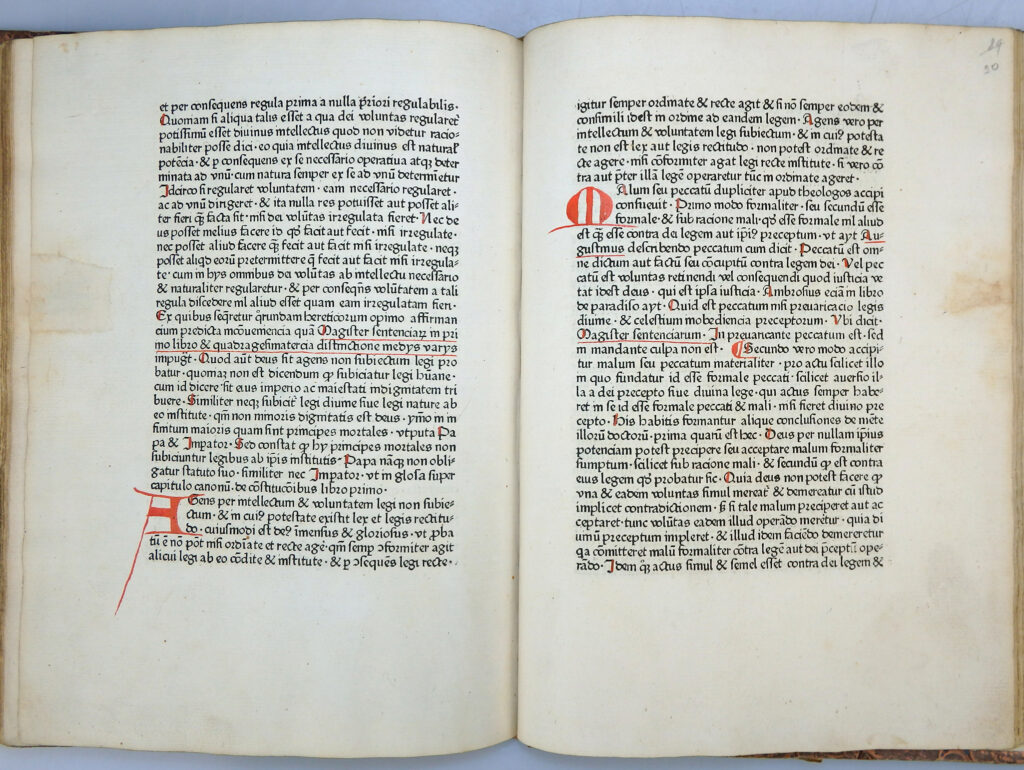 et per consequens regula prima a nulla p̄riori regulabilis·
Quoniam si aliqua talis esset a qua dei voluntas regularet̄
potissimū esset diuinus intellectus quod non videtur racio⸗
nabiliter posse dici· eo quia intellectus diuinus est natural̓
potēcia· & ꝑ consequens ex se necessario operatiua atqꝫ deter
minata ad vnū· cum natura semper ex se ad vnū determīetur
Idcirco si regularet voluntatem· eam necessario regularet·
ac ad vnū dirigeret· & ita nulla res potuisset aut posset ali⸗
ter fieri qꝫ̄ facta sit· nisi dei volūtas irregulata fieret· Nec de
us posset melius facere id qꝭ facit aut fecit· nisi irregulate·
nec posset aliud facere qꝫ̄ fecit aut facit nisi irregulate· neqꝫ
posset aliqd̓ eorū pretermittere q̄ fecit aut facit nisi irregula⸗
te· cum in hys omnibus dei volūtas ab intellectu necessario
& naturaliter regularetur· & per conseqn̄s volūtatem a tali
regula discedere nil aliud esset quam eam irregulatam fieri·
Ex quibus seqr̄etur qr̄undam hereticorum opinio affirman
cium predicta inconuemencia quā Magister sentenciaꝝ in pri
mo libro & quadragesimatercia distinctione medys varys
impugt̓· Quod aūt deus sit agens non subiectum legi pro
batur· quomaꝫ non est dicendum ꝙ subiciatur legi hūane·
cum id dicere sit eius imperio ac maiestati indignitatem tri
buere· Similiter neqꝫ subicit̓ legi diuine siue legi nature ab
eo institute· qm̄ non minoris dignitatis est deus· ymo in in
finitum maioris quam sint principes mortales· vtputa Pa
pa & Impator· Sed constat ꝙ hy principes mortales non
subiciuntur legibus ab ip̄is institutis· Papa nāqꝫ non obli⸗
gatur statuto suo· similiter nec Impator· vt in glosa super
capitulo canonū· de cōstitucōibus libro primo·
Agens per intellectum & voluntatem legi non subie⸗
ctum· & in cui9 potestate existit lex et legis rectitu⸗
do· cuiusmodi est de9 īmensus & gloriosus· vt ꝓba
tū ē nō pōt nisi ordīate et recte age̓· qm̄ semꝑ ꝯformiter agit
alicui legi ab eo cōdite & institute· & ꝑ ꝯsequēs legi recte·
igitur semper ordinate & recte agit & si nō semper eodem &
consimili idest in ordine ad eandem legem· Agens vero per
intellectum & voluntatem legi subiectum· & in cui9 potesta
te non est lex aut legis rectitudo· non potest ordinate & re
cte agere· nisi cōformiter agat legi recte institute· si vero cō
tra aut p̄ter illā legē operaretur tūc in ordinate ageret·
Malum seu peccatū dupliciter apud theologos accipi
consueuit· Primo modo formaliter· seu secundū esse
formale· & sub racione mali· qd̓ esse formale nil aliud
est qꝫ̄ esse contra dei legem aut ip̄i9 preceptum· vt ayt Au⸗
gustinus describendo peccatum cum dicit· Peccatū est om⸗
ne dictum aut factū seu cōcupitū contra legem dei· Vel pec
catū est voluntas retinendi vel consequendi quod iusticia ve
tat idest deus· qui est ipsa iusticia· Ambrosius eciā in libro
de paradiso ayt· Quid est peccatum nisi preuaricacio legis
diuine· & celestium inobediencia preceptorum· Vbi dicit·
Magister sentenciarum· In preuaricante peccatum est· sed
in mandante culpa non est· Secundo vero modo accipi⸗
tur malum seu peccatum materialiter· pro actu scilicet illo
in quo fundatur id esse formale peccati· scilicet auersio il⸗
la a dei precepto siue diuina lege· qui actus semper habe⸗
ret in se id esse formale peccati & mali· nisi fieret diuino pre
cepto· His habitis formantur alique conclusiones de mēte
illorū doctorū· prima quarū est hec· Deus per nullam ip̄ius
potenciam potest precipere seu acceptare malum formaliter
sumptum· scilicet sub racione mali· & secundū ꝙ est contra
eius legem qd̓ probatur sic· Quia deus non potest facere ꝙ
vna & eadem voluntas simul mereat̓ & demereatur cū istud
implicet contradictionem· sꝫ si tale malum preciperet aut ac
ceptaret· tunc volūtas eadem illud operādo meret̓ur· quia di
uinū preceptum impleret· & illud idem faciēdo demereretur
qa cōmitteret malū formaliter cōtra legē aut dei p̄ceptū ope⸗
rādo· Idem qꝫ̄ actus simul & semel esset contra dei legem &
29
30